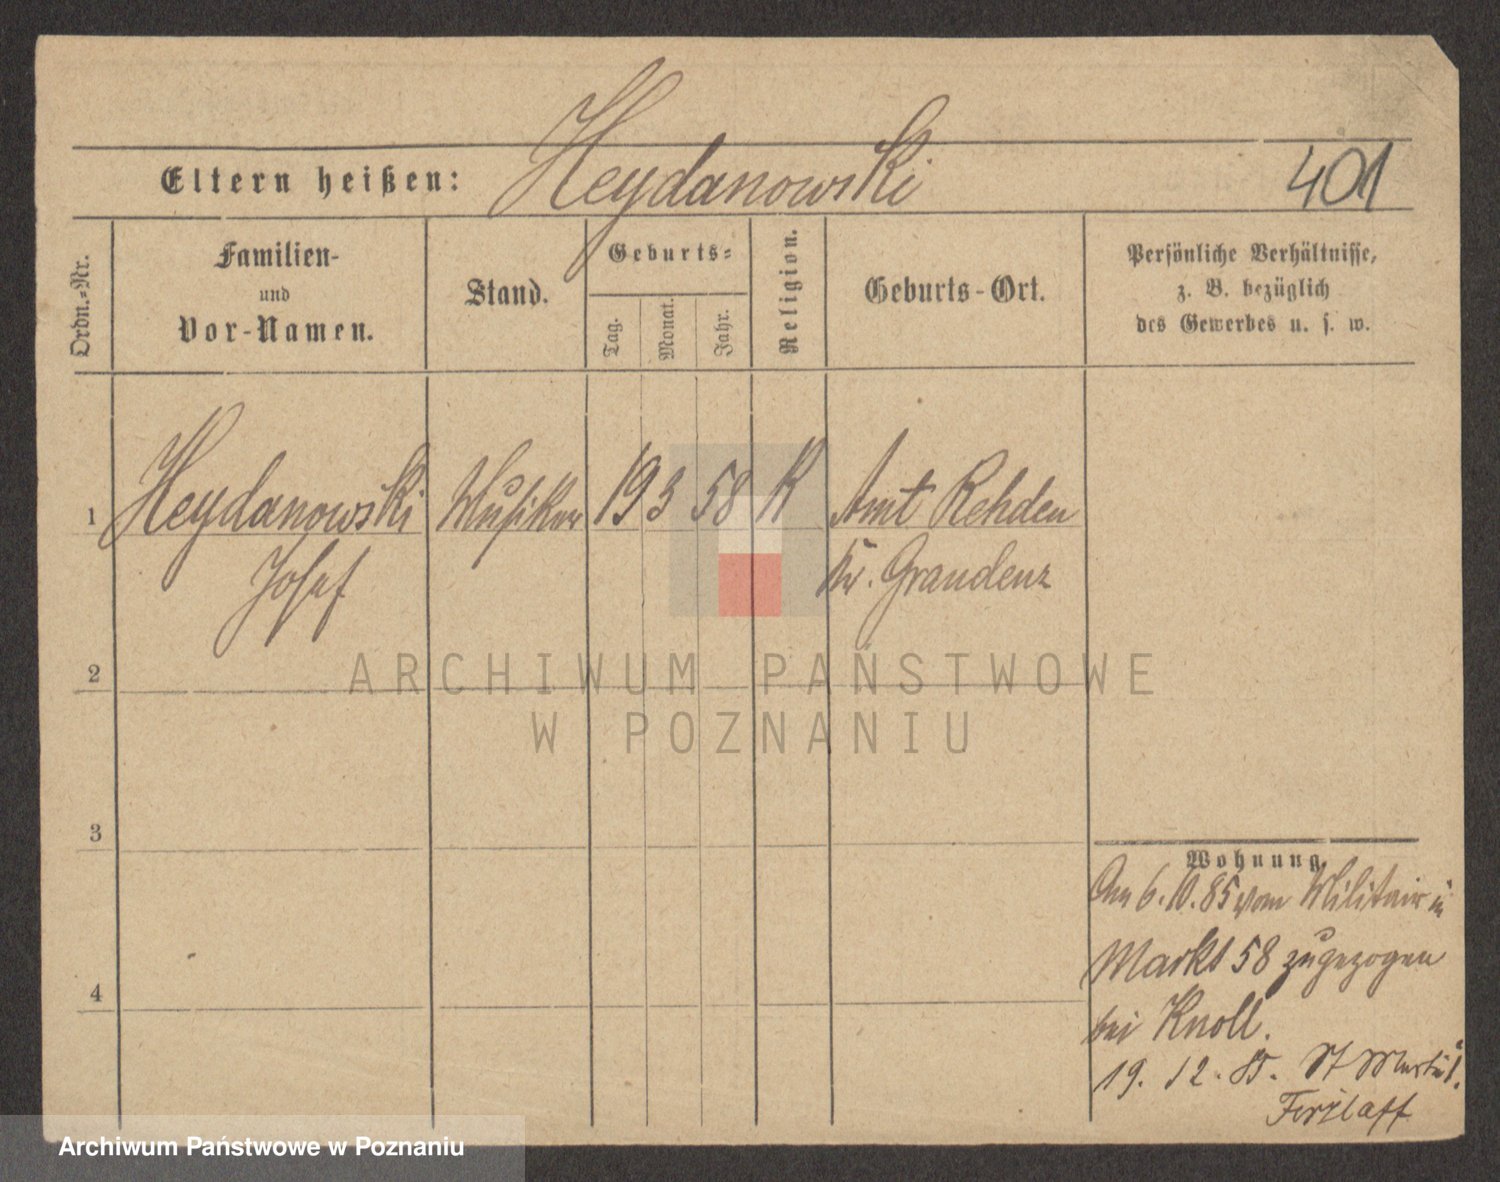 Eltern heißen: Heydanowski 401
Ordn.-Nr.
Familien-
und
Vor-Namen.
Stand.
Geburts-
Tag.
Monat.
Jahr.
Religion.
Geburts-Ort.
Persönliche Verhältnisse,
z. B. bezüglich
des Gewerbes u. s. w.
1 Heydanowski Musiker 19 3 58 K Amt Rehden
Josef Kr. Graudenz
2
3
4
Wohnung.
Am 6.10.85 vom Militair in
Markt 58 zugezogen
bei Knoll.
19. 12. 85. St Martin
ARCHIWUM PAŃSTWOWE
W POZNANIU
Archiwum Państwowe w Poznaniu